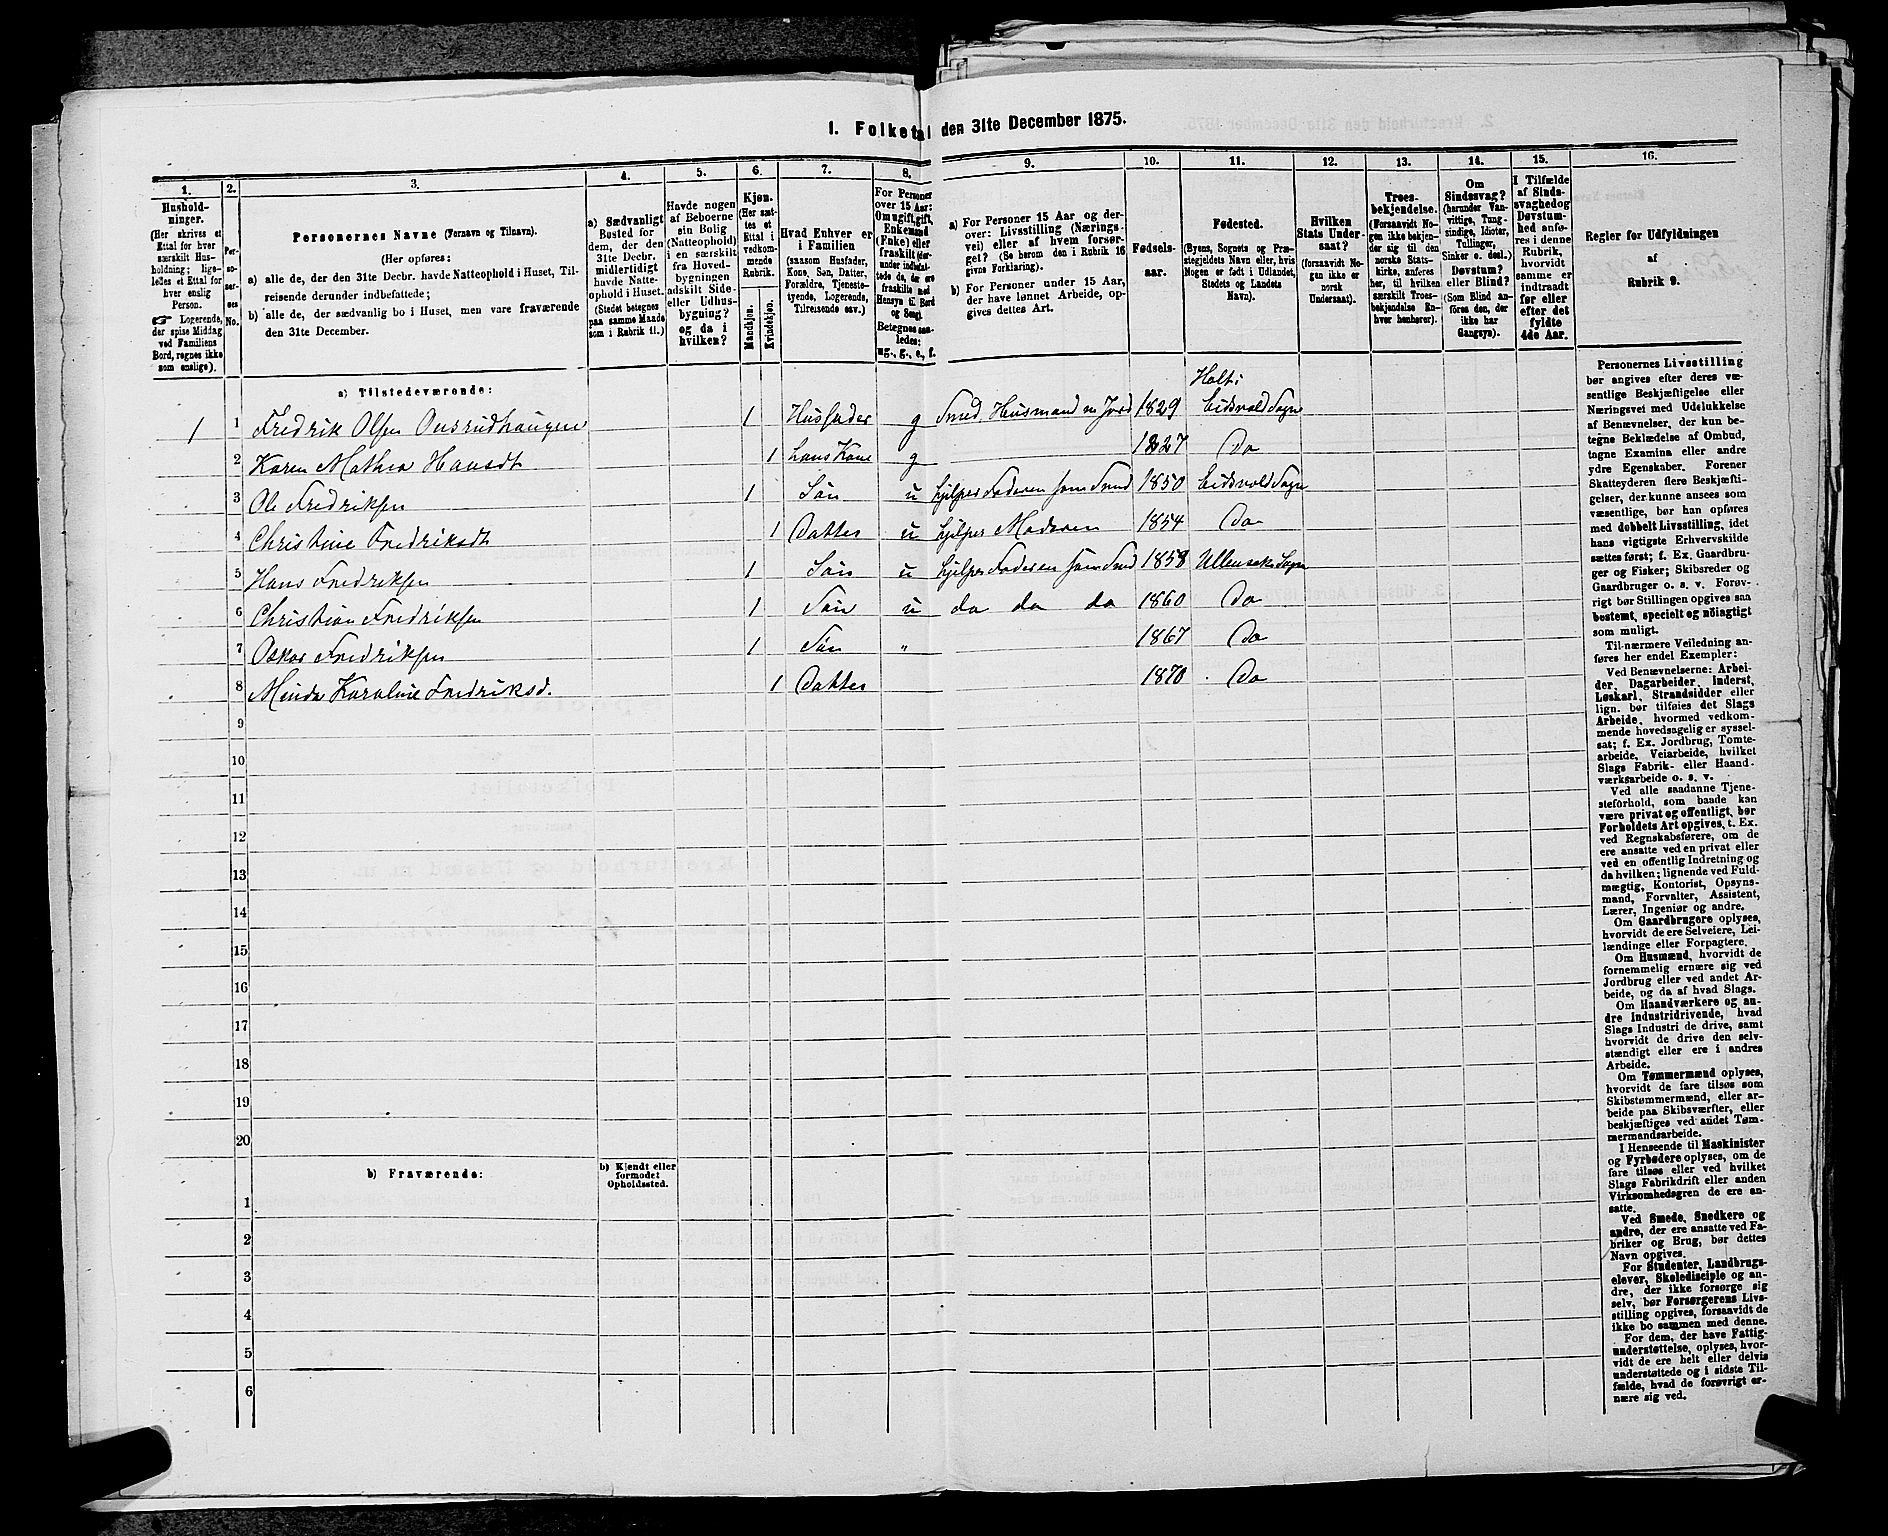 1. Folketal den 31te December 1875.
1.
2.
3.
4.
5.
6.
7.
8.
9.
10.
11.
12.
13.
14.
15.
16.
Hushold-
ninger.
(Her skrives et
Ettal for hver
særskilt Hus-
holdning; lige-
ledes et Ettal for
hver enslig
Person.
☞ Logerende,
der spise Middag
ved Familiens
Bord, regnes ikke
som enslige).
Per-
so-
ner-
nes
No.
Personernes Navne (Fornavn og Tilnavn).
(Her opføres:
a) alle de, der den 31te Decbr. havde Natteophold i Huset, Til-
reisende derunder indbefattede;
b) alle de, der sædvanlig bo i Huset, men vare fraværende
den 31te December.
a) Sædvanligt
Bosted for
dem, der den
31te Decbr.
midlertidigt
havde Natte-
ophold i Huset.
(Stedet betegnes
paa samme Maade
som i Rubrik 11.)
Havde nogen
af Beboerne
sin Bolig
(Natteophold)
i en særskilt
fra Hoved-
bygningen
adskilt Side-
eller Udhus-
bygning?
og da i
hvilken?
Kjøn.
(Her sæt-
tes et
Ettal i
vedkom-
mende
Rubrik.
Mandkjøn.
Kvindekjøn.
Hvad Enhver er
i Familien
(saasom Husfader,
Kone, Søn, Datter,
Forældre, Tjeneste-
tyende, Logerende,
Tilreisende osv.)
For Personer
over 15 Aar:
Om ugift, gift,
Enkemand
(Enke) eller
fraskilt (der-
under indbefat-
tede de, der ere
fraskilte med
Hensyn til Bord
og Seng).
Betegnes saa-
ledes:
ug., g., e., f.
a) For Personer 15 Aar og der-
over: Livsstilling (Nærings-
vei) eller af hvem forsør-
get? (Se herom den i Rubrik 16
givne Forklaring).
b) For Personer under 15 Aar,
der have lønnet Arbeide, op-
gives dettes Art.
Fødsels-
aar.
Fødested.
(Byens, Sognets og Præ-
stegjeldets Navn eller, hvis
Nogen er født i Udlandet,
Stedets og Landets
Navn).
Hvilken
Stats Under-
saat?
(forsaavidt No-
gen ikke er
norsk
Undersaat).
Troes-
bekjendelse.
(Forsaavidt No-
gen ikke bekjen-
der sig til den
norske Stats-
kirke, anføres
her, til hvilken
særskilt Troes-
bekjendelse En-
hver henhører).
Om
Sindssvag?
(herunder Van-
vittige, Tung-
sindige, Idioter,
Tullinger,
Sinker o. desl.).
Døvstum?
eller Blind?
(Som Blind an-
føres den, der
ikke har
Gangsyn).
I Tilfælde
af Sinds-
svaghed og
Døvstum-
hed anfø-
res i denne
Rubrik,
hvorvidt
samme er
indtraadt
før eller
efter det
fyldte
4de Aar.
Regler for Udfyldningen
af
Rubrik 9.
a) Tilstedeværende:
Holt i
1 1 Fredrik Olsen Onsrudhaugen 1 Husfader g Smed, Husmand m Jord 1829 Eidsvold Sogn
2 Karen Mathea Hansdt 1 hans Kone g 1827 Do
3 Ole Fredriksen 1 Søn u hjelper Faderen som Smed 1850 Eidsvold Sogn
4 Christine Fredriksdt 1 Datter u hjelper Moderen 1854 Do
5 Hans Fredriksen 1 Søn u hjelper Faderen som Smed 1858 Ullensaker Sogn
6 Christian Fredriksen 1 Søn u do do do 1860 Do
7 Oskar Fredriksen 1 Søn " 1867 Do
8 Minda Karoline Fredriksd. 1 Datter 1870 Do
9
10
11
12
13
14
15
16
17
18
19
20
b) Fraværende:
b) Kjendt eller
formodet
Opholdssted.
1
2
3
4
5
6
Personernes Livsstilling
bør angives efter deres væ-
sentlige Beskjæftigelse eller
Næringsvei med Udelukkelse
af Benævnelser, der kun be-
tegne Beklædelse af Ombud,
tagne Examina eller andre
ydre Egenskaber. Forener
Skatteyderen flere Beskjæfti-
gelser, der kunne ansees som
væsentlige, bør han opføres
med dobbelt Livsstilling, idet
hans vigtigste Erhvervskilde
sættes først; f. Ex. Gaardbru-
ger og Fisker; Skibsreder og
Gaardbruger o. s. v. Forøv-
rigt bør Stillingen opgives saa
bestemt, specielt og nøiagtigt
som muligt.
Til nærmere Veiledning an-
føres her endel Exempler:
Ved Benævnelserne: Arbei-
der, Dagarbeider, Inderst,
Løskarl, Strandsidder eller
lign. bør tilføies det Slags
Arbeide, hvormed vedkom-
mende hovedsagelig er syssel-
sat; f. Ex. Jordbrug, Tomte-
arbeide, Veiarbeide, hvilket
Slags Fabrik- eller Haand-
værksarbeide o. s. v.
Ved alle saadanne Tjene-
steforhold, som baade kan
være privat og offentligt, bør
Forholdets Art opgives, t. Ex.
ved Regnskabsførere, om de
ere ansatte ved en privat eller
ved en offentlig Indretning og
da hvilken; lignende ved Fuld-
mægtig, Kontorist, Opsyns-
mand, Forvalter, Assistent,
Lærer, Ingeniør og andre.
Om Gaardbrugere oplyses,
hvorvidt de ere Selveiere, Lei-
lændinge eller Forpagtere.
Om Husmænd, hvorvidt de
fornemmelig ernære sig ved
Jordbrug eller ved andet Ar-
beide, og da af hvad Slags.
Om Haandværkere og an-
dre Industridrivende, hvad
Slags Industri de drive, samt
hvorvidt de drive den selv-
stændigt eller ere i andres
Arbeide.
Om Tømmermænd oplyses,
hvorvidt de fare tilsøs som
Skibstømmermænd, eller ar-
beide paa Skibsværfter, eller
beskjæftiges ved andet Tøm-
mermandsarbeide.
I Henseende til Maskinister
og Fyrbødere oplyses, om de
fare tilsøs eller ved hvilket
Slags Fabrikdrift eller anden
Virksomhedsgren de ere an-
satte.
Ved Smede, Snedkere og
andre, der ere ansatte ved Fa-
briker og Brug, bør dettes
Navn opgives.
For Studenter, Landbrugs-
elever, Skoledisciple og an-
dre, der ikke forsørge sig
selv, bør Forsørgerens Livs-
stilling opgives, forsaavidt de
ikke bo sammen med denne.
For dem, der have Fattig-
understøttelse, oplyses, hvor-
vidt de ere helt eller delvis
understøttede og i sidste Til-
fælde, hvad de forøvrigt er-
nære sig ved.